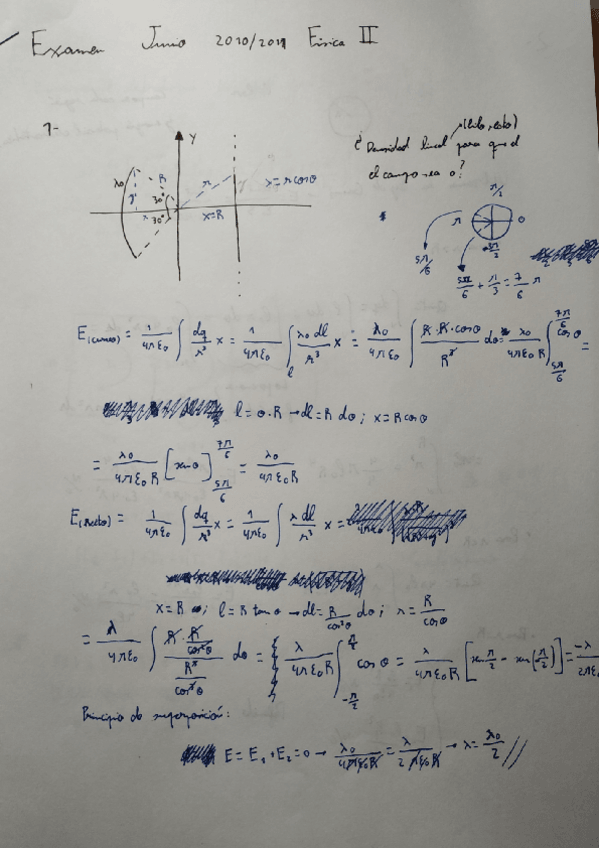 Examen Junio 2010/2011 Física II
1-
¿Densidad lineal (hilo recto) para que el
el campo sea 0?
λ₀ R 30° 30° y x r x=R Y x=r cosθ
π/2
π 0
5π/6
5π/6 + π/3 = 7/6 π
E(curvo) = 1/4πε₀ ∫ dq/r³ x = 1/4πε₀ ∫_l λ₀ dl/r³ x = λ₀/4πε₀ ∫ R·R·cosθ/R³ dθ = λ₀/4πε₀R ∫_{5π/6}^{7π/6} cosθ =
l = θ·R → dl = R dθ ; x = R cosθ
= λ₀/4πε₀R [senθ]_{5π/6}^{7π/6} = λ₀/4πε₀R
E(recto) = 1/4πε₀ ∫ dq/r³ x = 1/4πε₀ ∫ λ dl/r³ x =
x = R ; l = R tanθ → dl = R/cos²θ dθ ; r = R/cosθ
= λ/4πε₀ ∫ R·R/cos²θ / R³/cos³θ dθ = λ/4πε₀R ∫_{-π/2} cosθ = λ/4πε₀R [sen π/2 - sen(π/2)] = -λ/2πε₀
Principio de superposición:
E = E₁ + E₂ = 0 → λ₀/4πε₀R = λ/2πε₀R → λ = λ₀/2 //